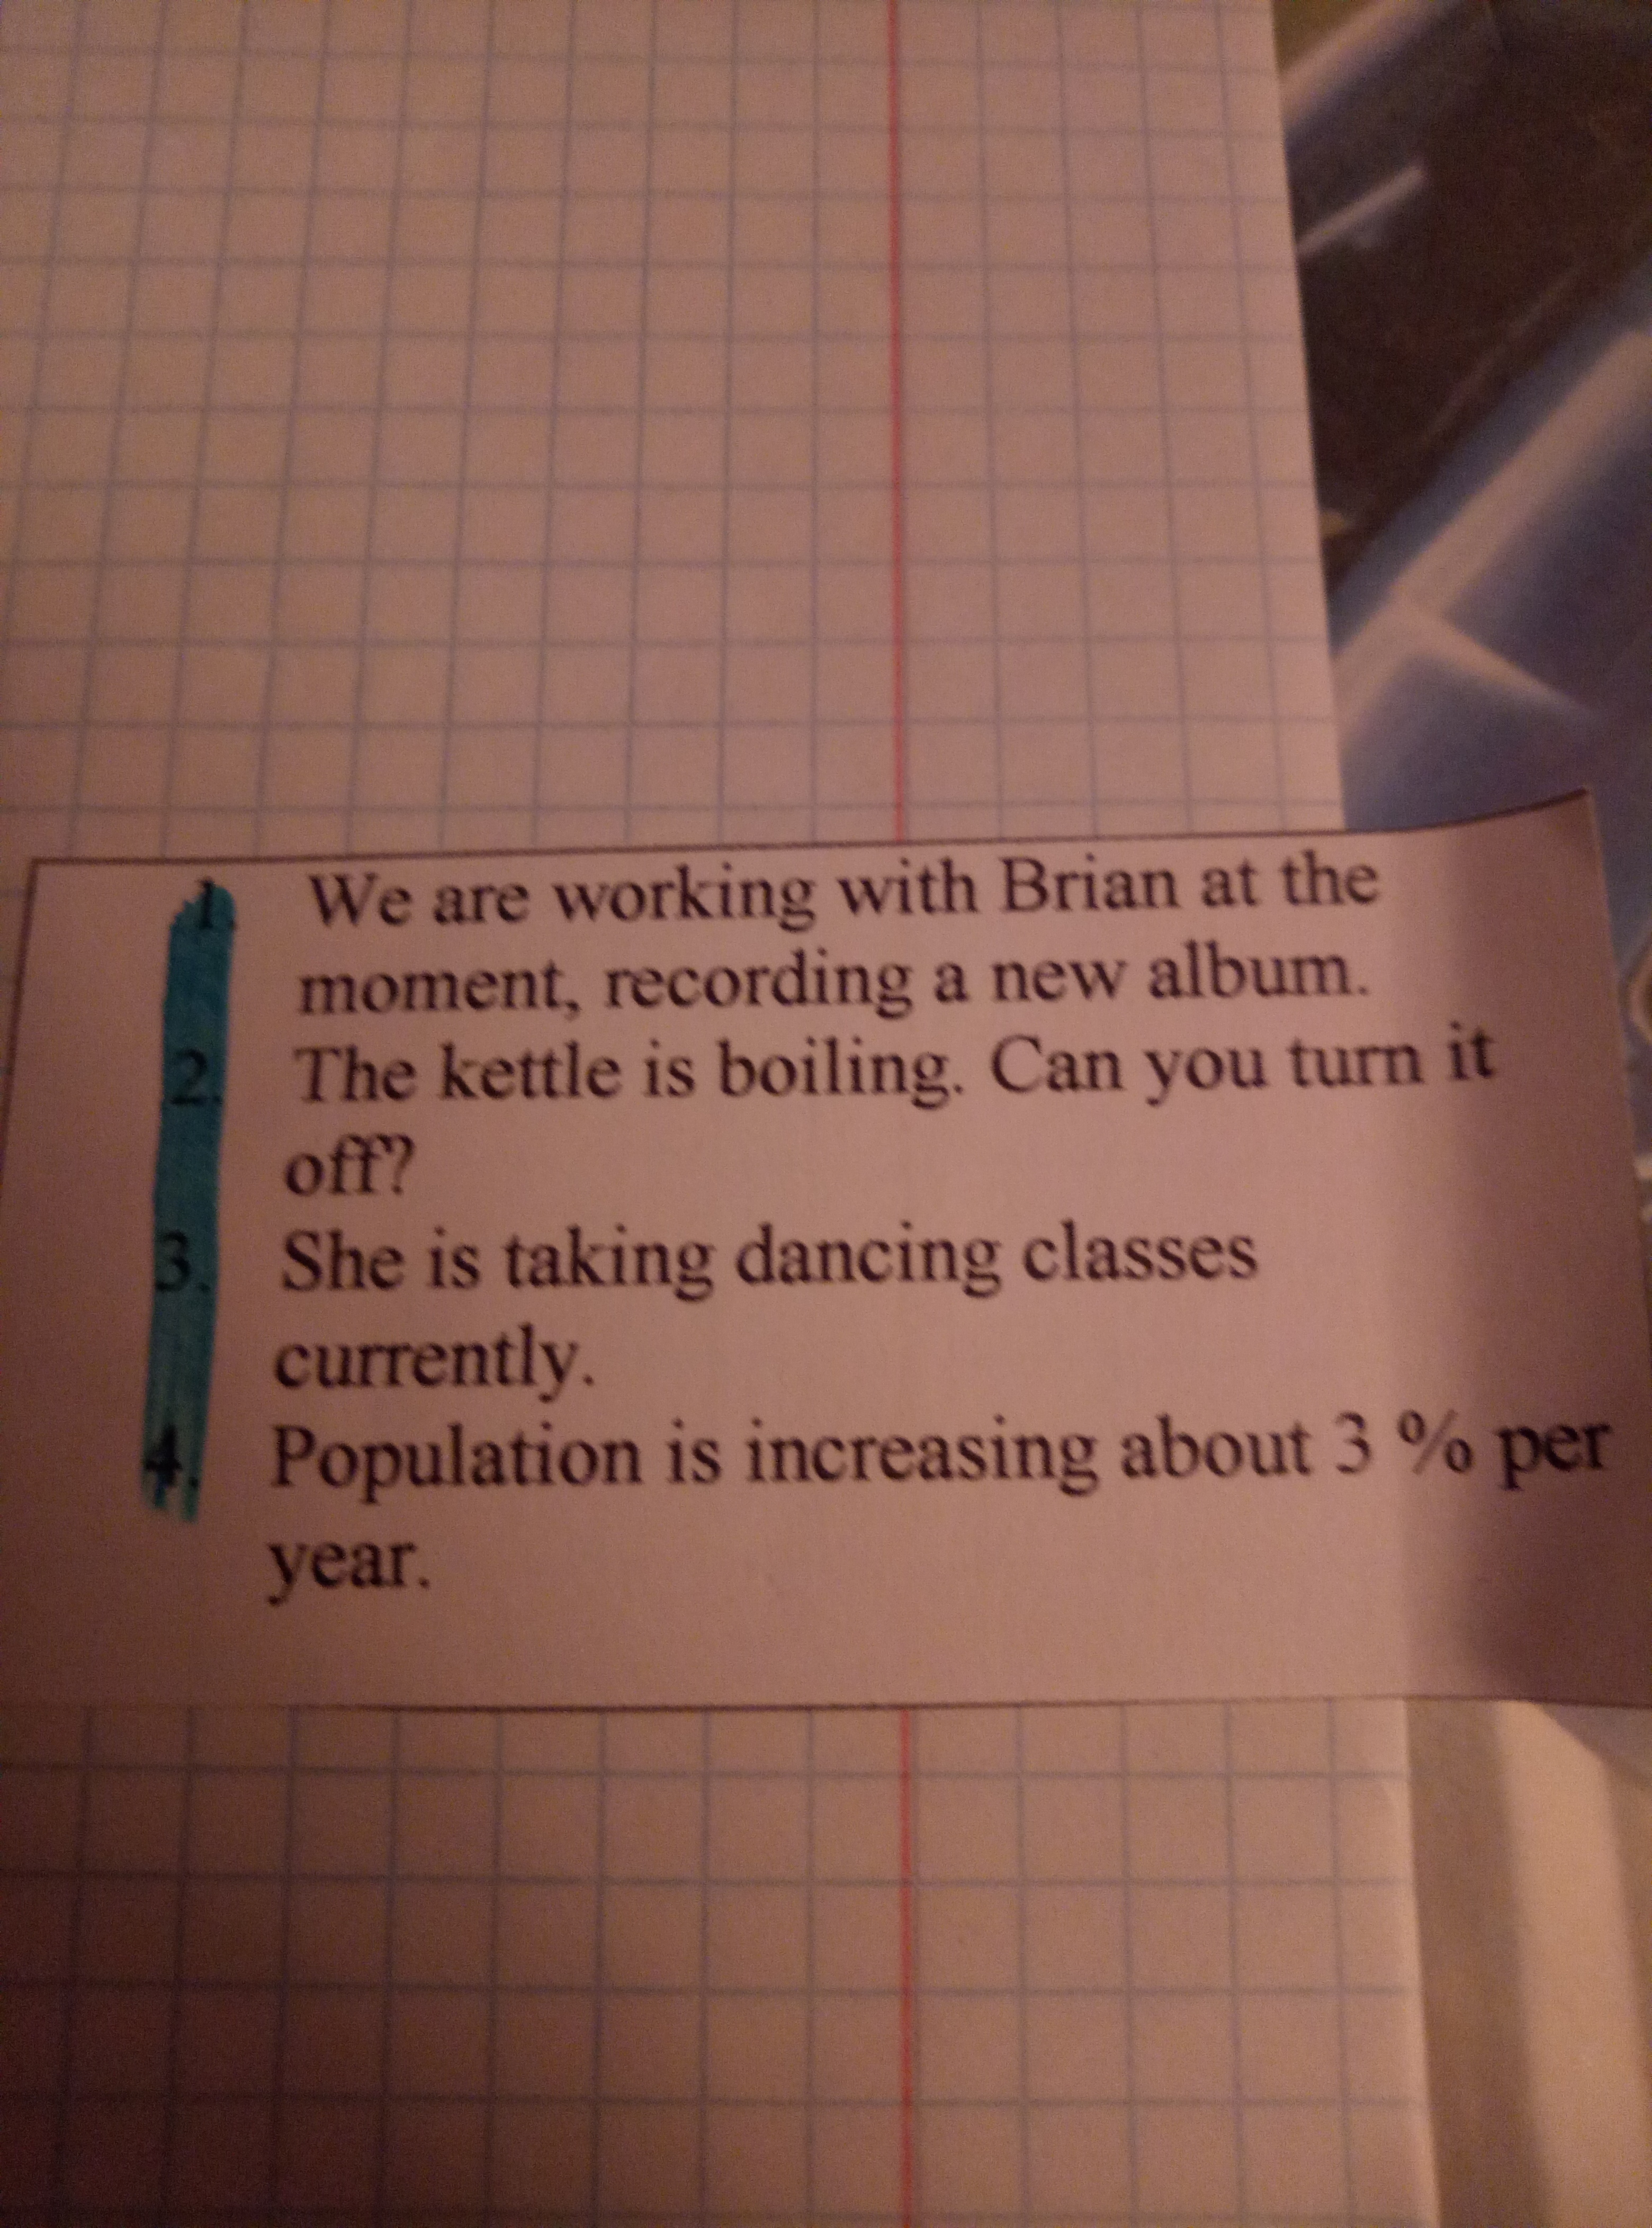 1. We are working with Brian at the
moment, recording a new album.
2. The kettle is boiling. Can you turn it
off?
3. She is taking dancing classes
currently.
4. Population is increasing about 3 % per
year.